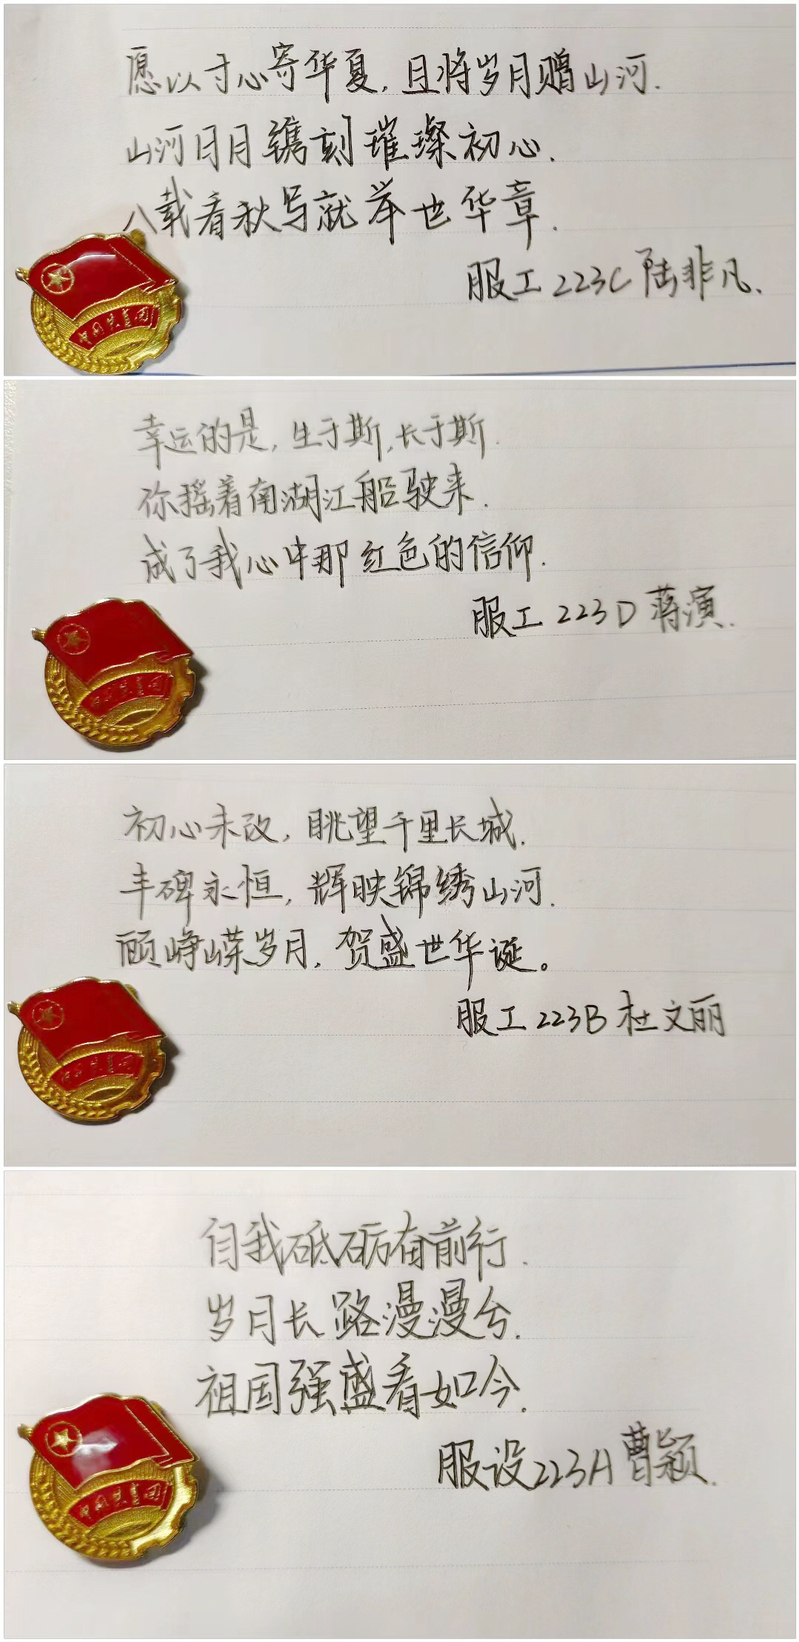 愿以寸心寄华夏,且将岁月赠山河.
山河日月镌刻璀璨初心.
八载看秋写就举世华章.
服工223C 陆非凡.
中国共青团
幸运的是,生于斯,长于斯.
你摇着南湖江船驶来.
成了我心中那红色的信仰.
服工223D 蒋演.
中国共青团
初心未改,眺望千里长城.
丰碑永恒,辉映锦绣山河.
顾峥嵘岁月,贺盛世华诞。
服工223B 杜文丽
中国共青团
自我砥砺奋前行.
岁月长路漫漫兮.
祖国强盛看如今.
服设223A 曹颖.
中国共青团